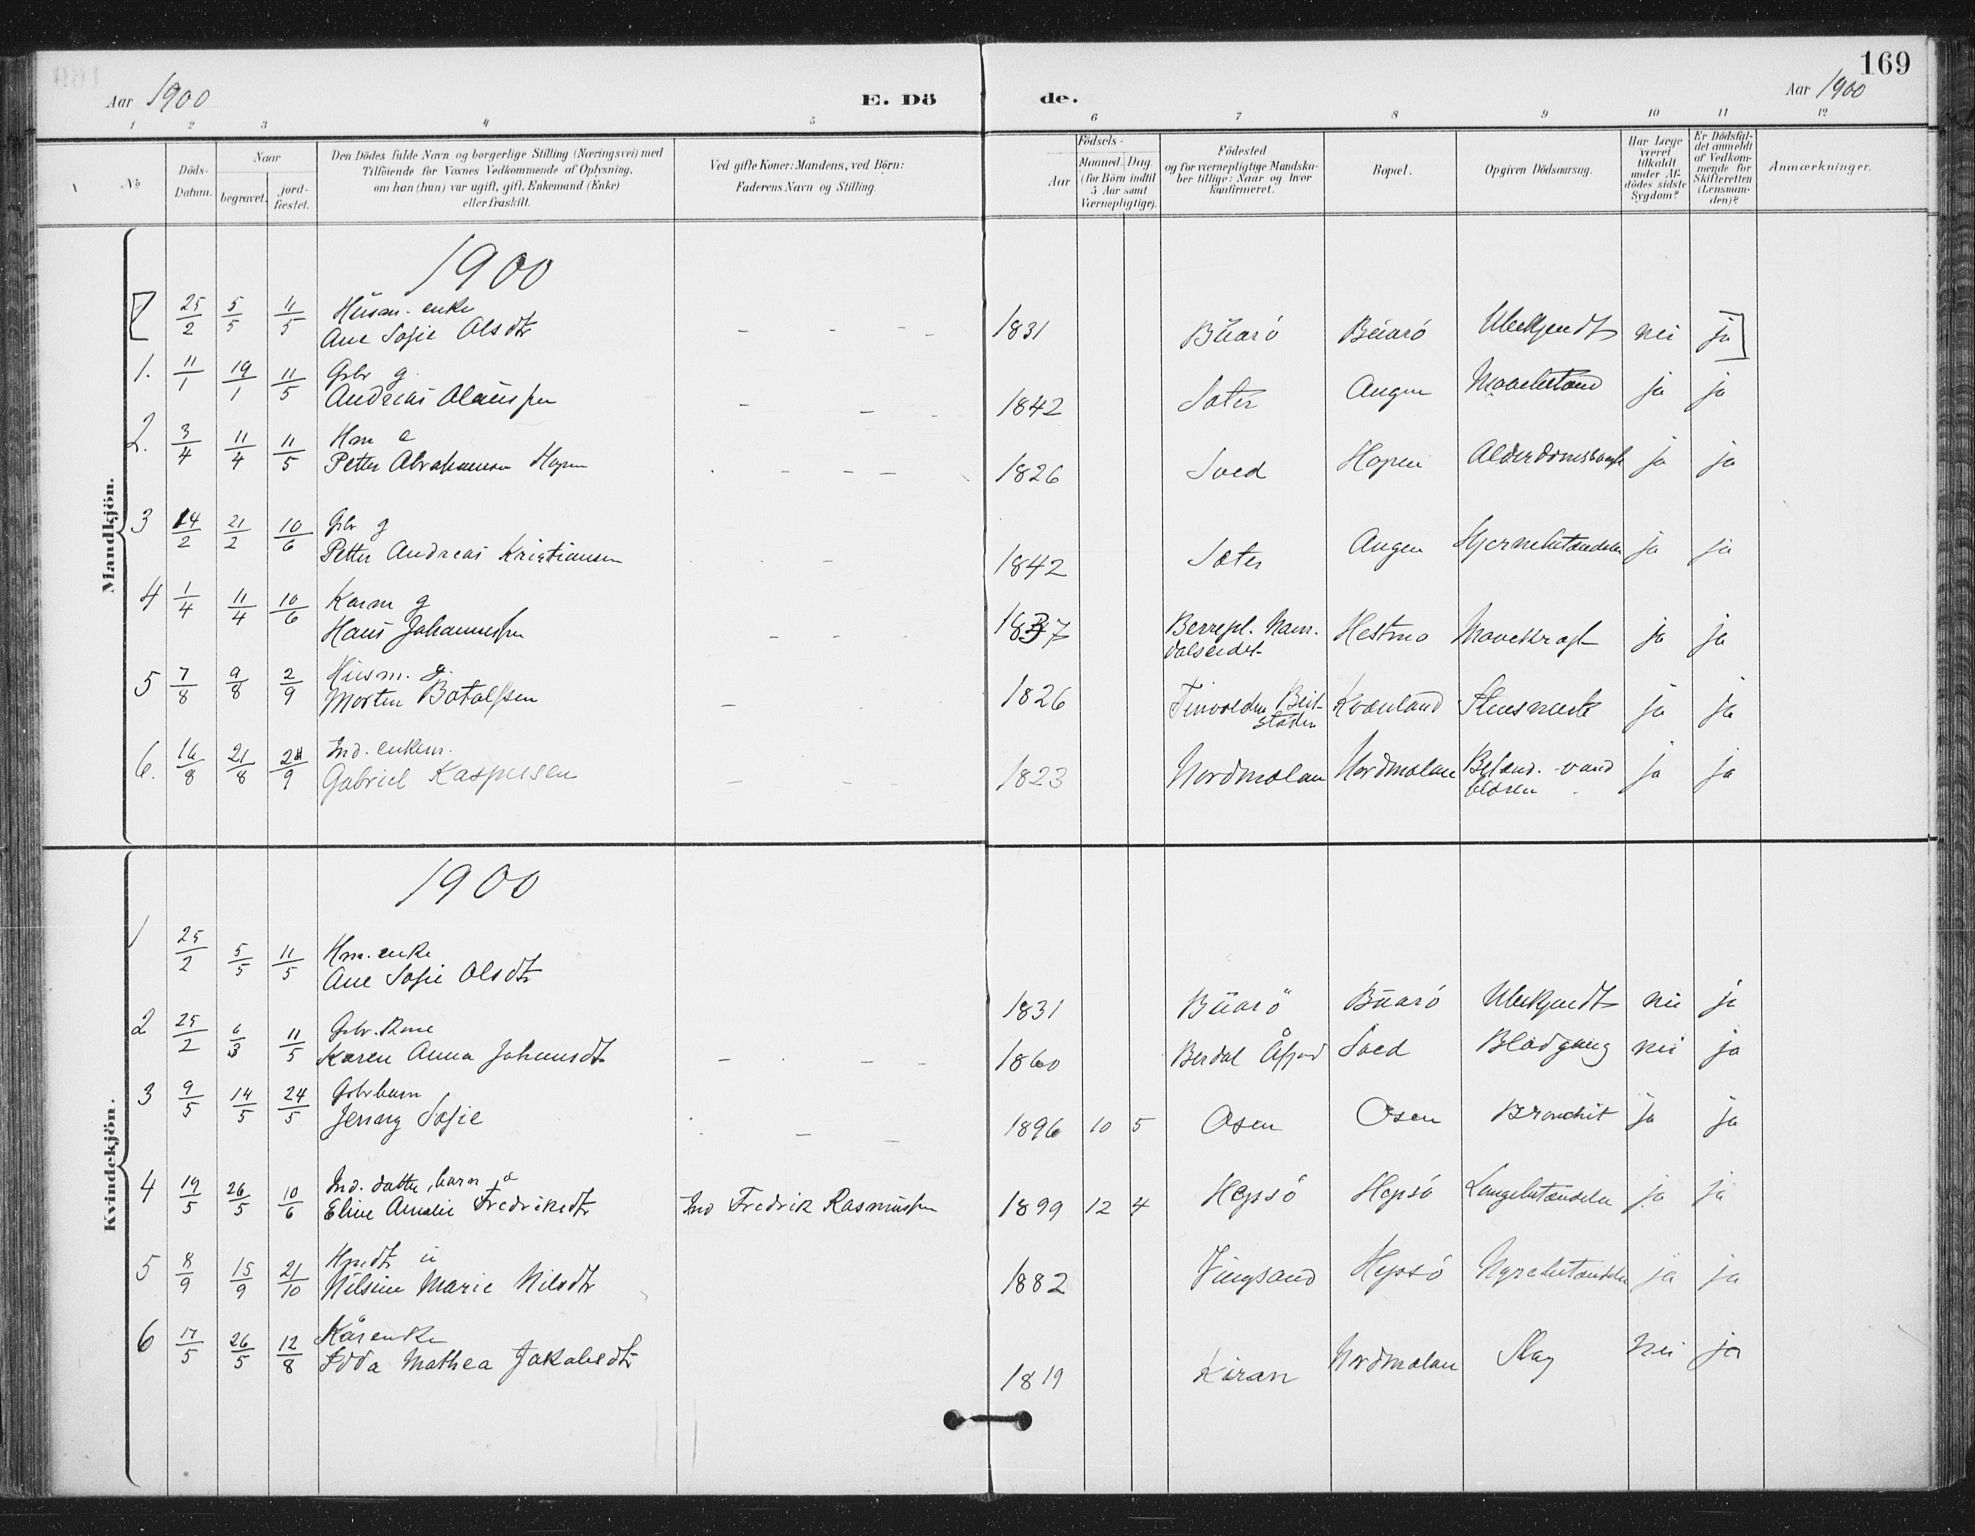 169
Aar 1900
E. Dö
de.
Aar 1900
1 2 3 4 5 6 7 8 9 10 11 12
No
Döds-
Datum.
Naar
begravet.
jord-
fæstet.
Den Dödes fulde Navn og borgerlige Stilling (Næringsvei) med
Tilföiende for Voxnes Vedkommende af Oplysning,
om han (hun) var ugift, gift, Enkemand (Enke)
eller fraskilt.
Ved gifte Koner: Mandens, ved Börn:
Faderens Navn og Stilling.
Födsels-
Aar
Maaned. Dag.
(for Börn indtil
5 Aar samt
Værnepligtige).
Födested
og for værnepligtige Mandska-
ber tillige: Naar og hvor
konfirmeret.
Bopæl.
Opgiven Dödsaarsag.
Har Læge
været
tilkaldt
under Af-
dödes sidste
Sygdom?
Er Dödsfal-
det anmeldt
af Vedkom-
mende for
Skifteretten
(Lensman-
den)?
Anmærkninger.
Mandkjön.
1900
25/2 5/5 11/5 Husm. enke
Ane Sofie Olsdtr - - - - 1831 Buarö Buarö Ubekjendt nei ja
1. 11/1 19/1 11/5 Gbr g.
Andreas Olaussen - - - 1842 Sæter Angen Mavebetænd ja ja
2. 3/4 11/4 11/5 Hm e
Petter Abrahamsen Hopen - - - 1826 Sved Hopen Alderdomssvagh ja ja
3 14/2 21/2 10/6 Gbr g
Petter Andreas Kristiansen - 1842 Sæter Angen Hjernebetændelse ja ja
4 1/4 11/4 10/6 Kaarm g
Hans Johannessen - - - 1837 Berrepl. Nam-
dalseidet Hestmo Mavekræft ja ja
5 7/8 9/8 2/9 Husm. g.
Morten Botolfsen - - - 1826 Finvolden Beit-
staden Kvænland ja ja
6. 16/8 21/8 9 Ind. enkem.
Gabriel Kaspersen - - - 1823 Nordmelan Nordmelan ja ja
Kvindekjön.
1900
1 25/2 5/5 11/5 Hm. enke
Ane Sofie Olsdtr 1831 Buarö Buarö Ubekjendt nei ja
2 25/2 6/3 11/5 Gbr. Kone
Karen Anna Johansdtr - - - 1860 Berdal Åfjord Sved Blodgang nei ja
3 9/5 14/5 24/5 Gbrbarn
Jenny Sofie - - - 1896 10 5 Osen Osen Bronchit ja ja
4 19/5 26/5 10/6 Ind. datter, barn
Eline Amalie Fredriksdtr Ind Fredrik Rasmussen 1899 12 4 Hepsö Hepsö Lungebetændelse ja ja
5 8/9 15/9 21/10 Hmdtr u
Nilsine Marie Nilsdtr 1882 Vingsand Hepsö Nyrebetændelse ja ja
6 17/5 26/5 12/8 Kårenke
Edda Mathea Jakobsdtr 1819 Kiran Nordmelan Slag nei ja